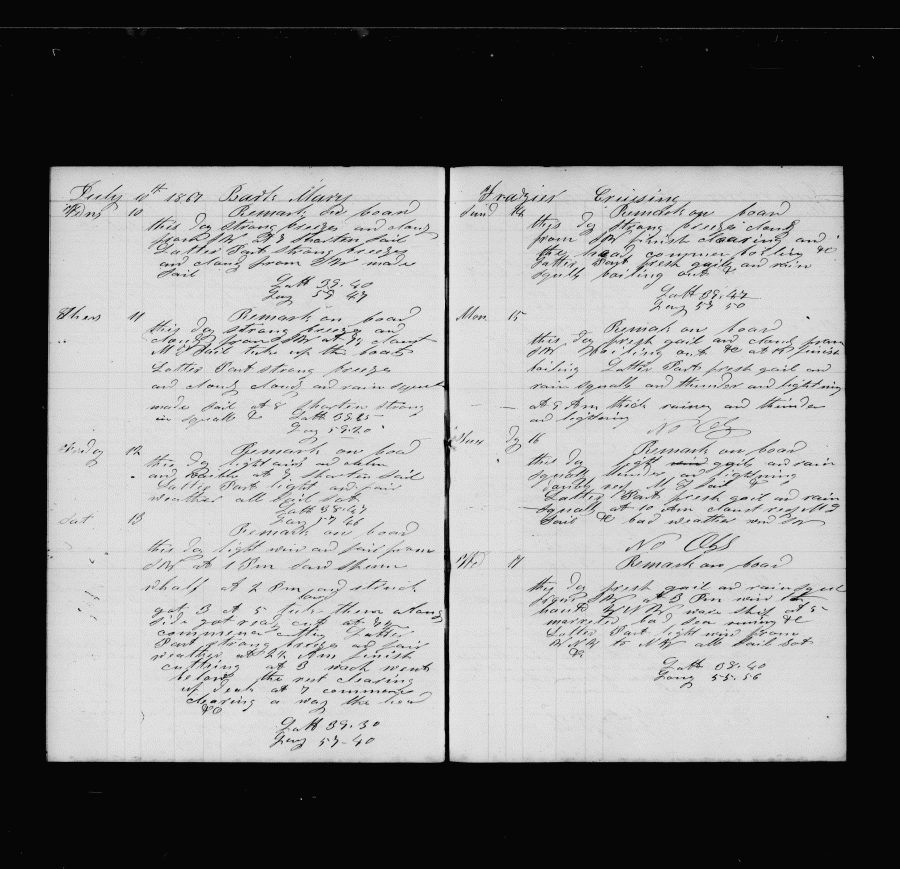 July 10th 1867 Bark Mary
Wdns 10 Remark on board
this day strong breezes and cloudy
from SW shorten sail
Latter Part strong breezes
and cloudy from SW made
sail
Latt 39.40
Long 59 47
Thurs 11 Remark on board
this day strong breezes and
cloudy from SW at
M T Sail take up the boats
Latter Part strong breezes
and cloudy cloudy and rain squalls
made sail at 8 shorten strong
in squalls &c Latt 39
Long 59.20
Friday 12 Remark on board
this day light airs and calm
and shorten sail
Latter Part light and fair
weather all sail sot
Latt 38.47
Long 57 46
Sat 13
Remark on board
this day light wind and fair from
SW at 1 Pm saw sperm
whals at 2 Pm and struck
got 3 at 5 take them along
side got ready cut at
commence cutting Latter
Part strong breezes and fair
weather at Am finish
cutting at 3 wach went
below the rest clearing
up deck at 7 commence
clearing a way the head
&c
Latt 39.30
Long 57-40
Frazier Cruising
Sund 14 Remark on board
this day strong breezes cloudy
from SW finish clearing and
the head commence boiling &c
Latter Part fresh gails and rain
squalls boiling out &
Latt 39.47
Long 57 50
Mon 15
Remark on board
this day fresh gail and cloudy from
SW boiling out &c at finish
boiling Latter Part fresh gail and
rain squalls and thunder and lightning
at 9 Am thick rainey and thunder
and lightning
No Obs
Tues dy 16
Remark on board
this day light gail and rain
squalls thunder lightning
double reef M T Sail &
Latter Part fresh gail and rain
squalls at 10 Am close reef M T
Sail &c bad weather wind SW
No Obs
Wd 17 Remark on board
this day fresh gail and rain squal
from SW at 3 Pm wind
haul W N W wase ship at 5
bad sea runing &c
Latter Part light wind from
W N W to N W all sail sot
&c
Latt 39.40
Long 55.56